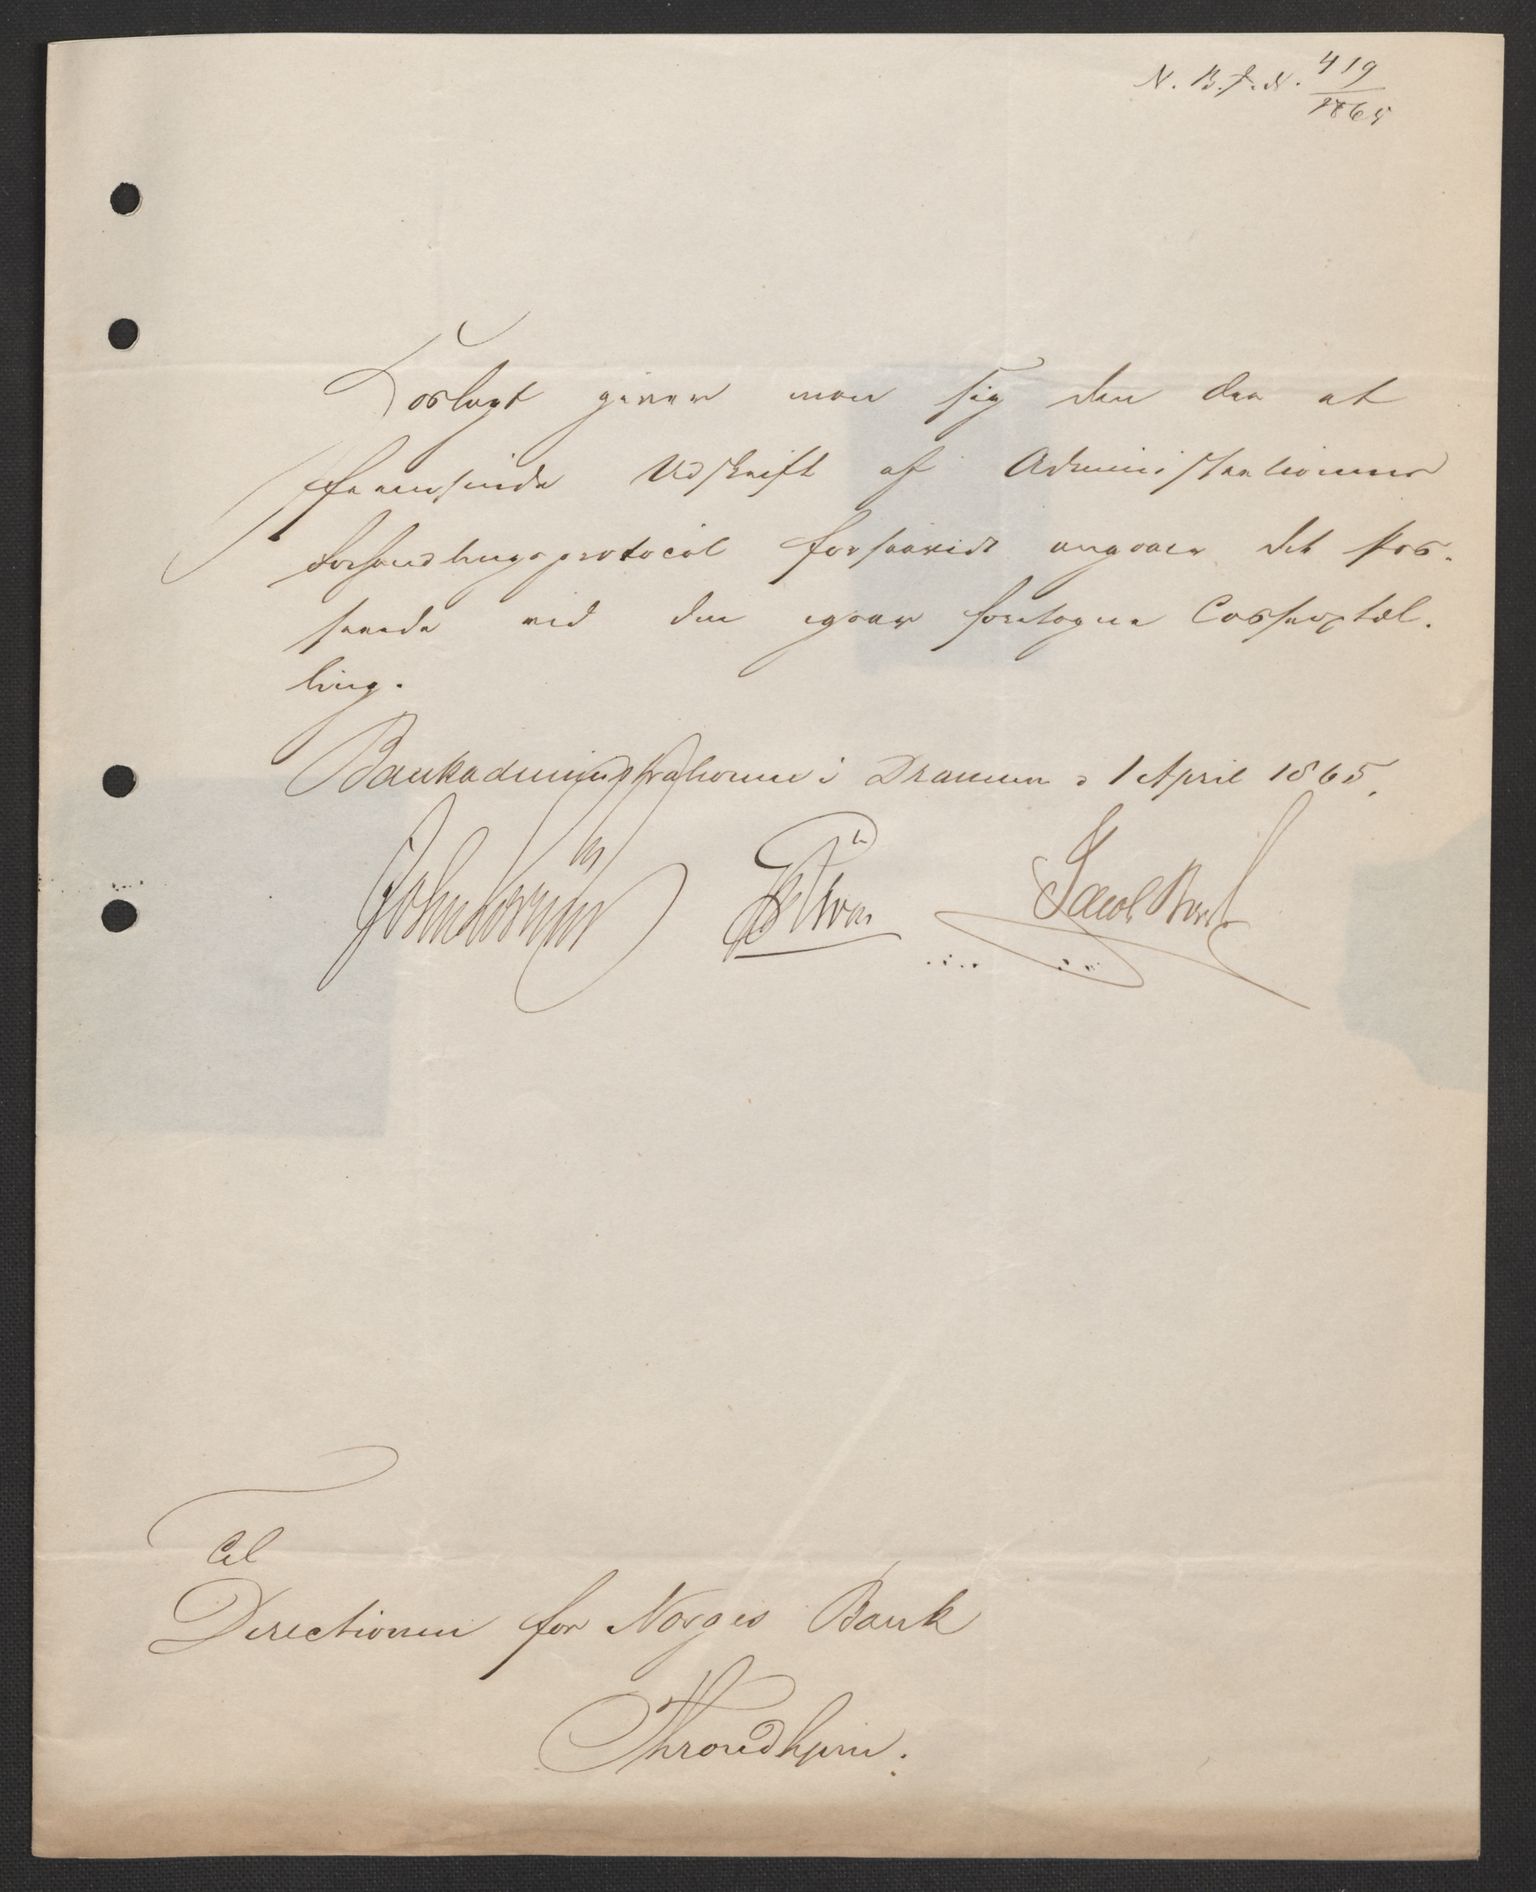 N. B. J. N. 419
1865
Vorlagt giver man sig den Ære at
fremsende Udskrift af Administrationens
Forhandlingsprotocol forsaavidt angaaer det Pas-
serede ved den igaar foretagne Casseoptæl-
ling.
Bankadministrationen i Drammen d 1 April 1865.
Jacob Borch
Til
Directionen for Norges Bank
Throndhjem.